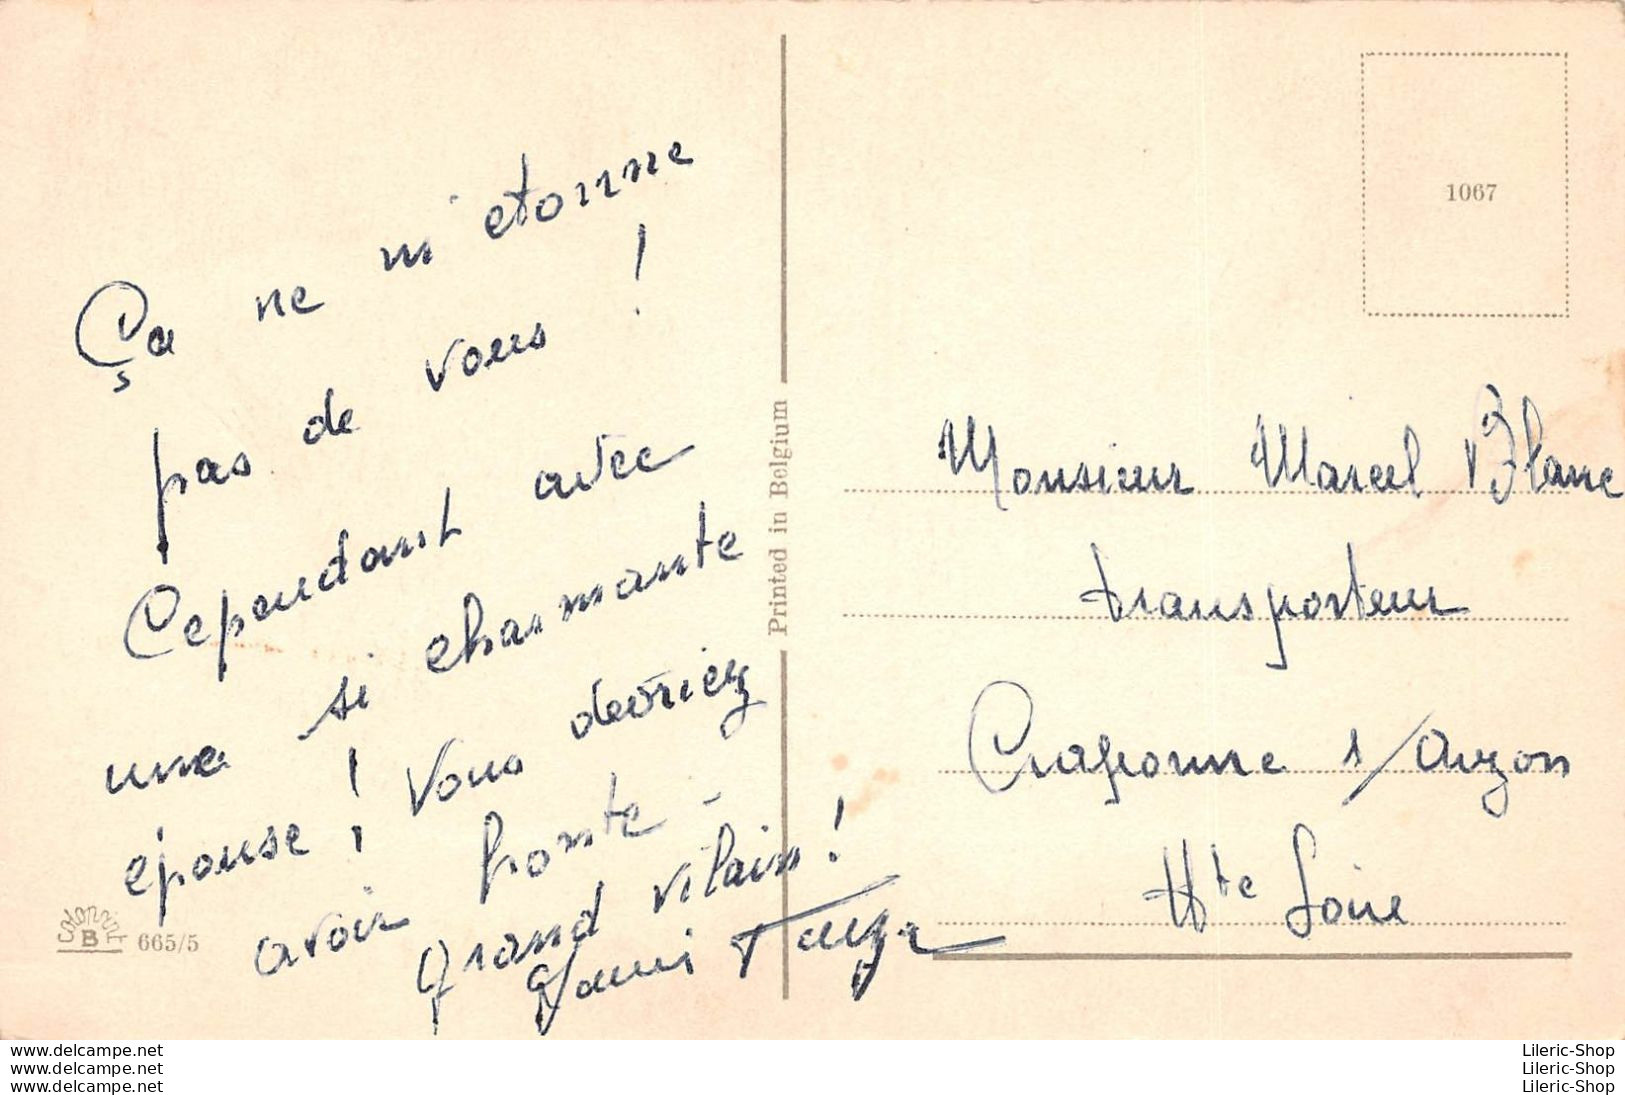 Ça ne m'etonne
pas de vous !
Cependant avec
une si charmante
épouse ! Vous devriez
avoir honte -
grand vilain !
Printed in Belgium
1067
Monsieur Marcel Blanc
transporteur
Craponne s/Arzon
Hte Loire
Colorprint
B 665/5
www.delcampe.net
www.delcampe.net
www.delcampe.net
Lileric-Shop
Lileric-Shop
Lileric-Shop